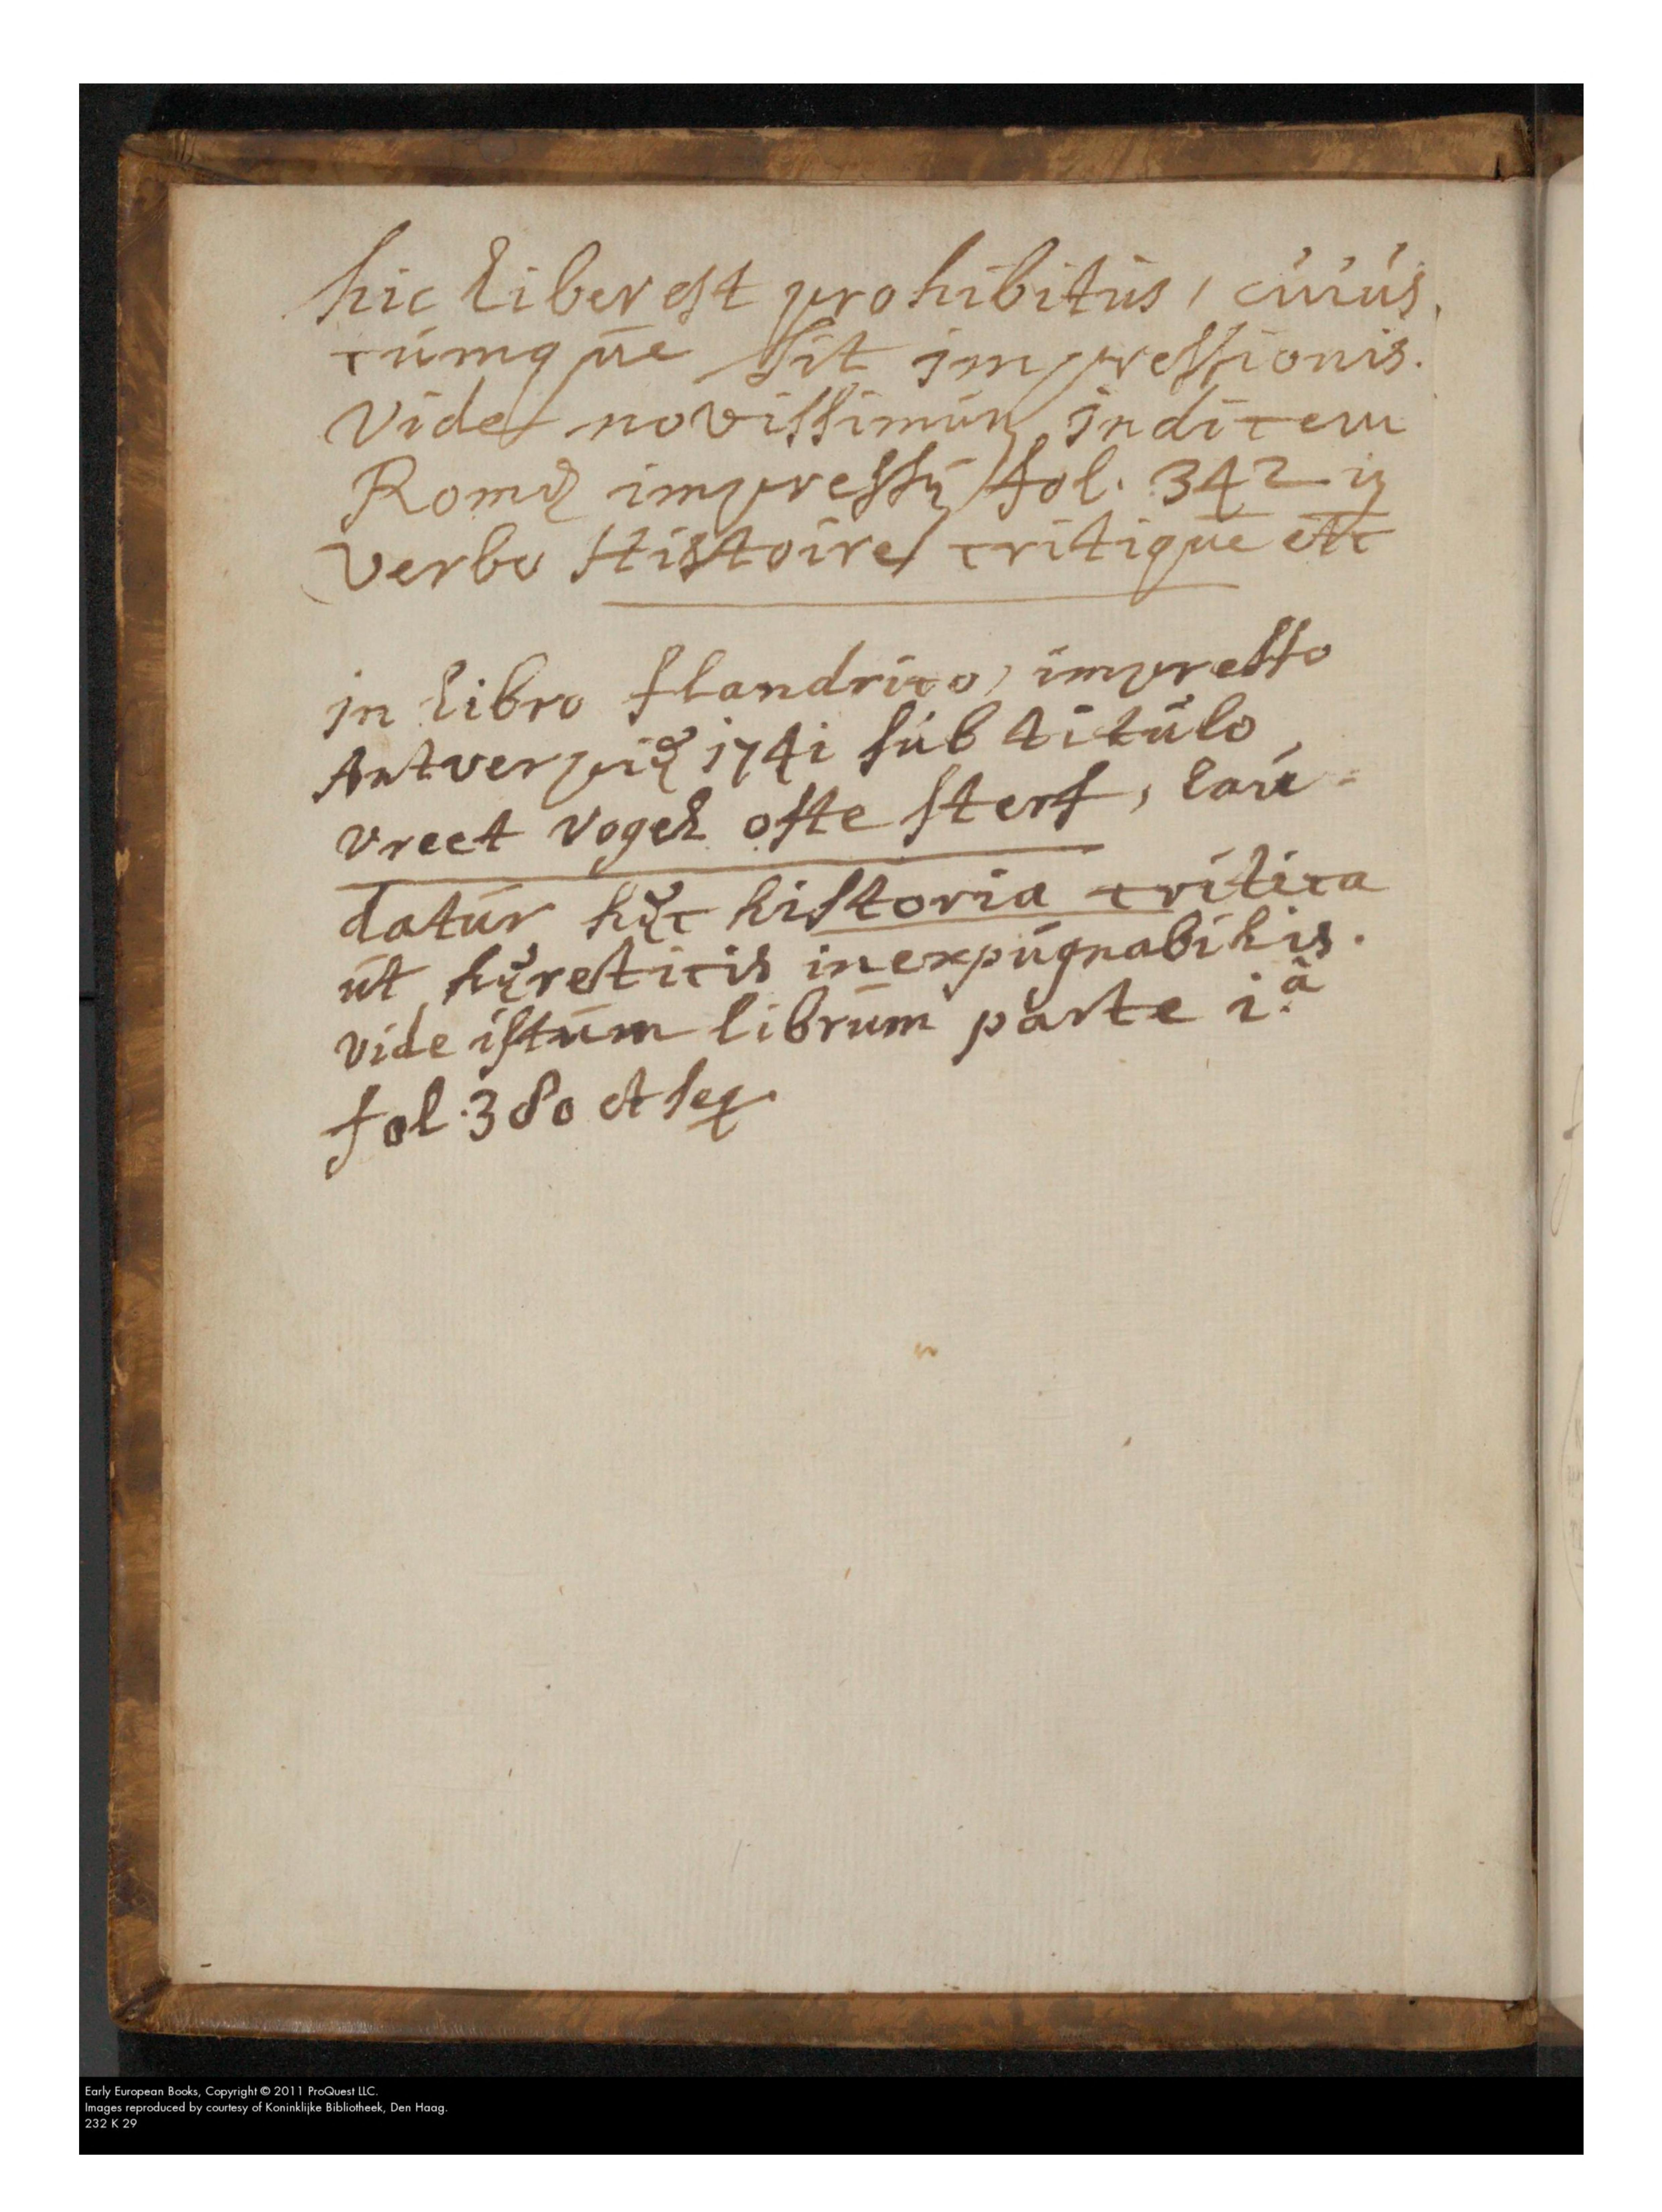 hic liber est prohibitus, cuius-
cumque sit impressionis.
Vide novissimum indicem
Romæ impressū fol. 342 in
verbo Histoire critique etc
in libro flandrico, impresso
Antverpiæ 1741 sub titulo,
vreet vogel ofte sterf, lau-
datur hæc historia critica
ut hæreticis inexpugnabilis.
vide istum librum parte 1.ª
fol. 380 et seq.
Early European Books, Copyright © 2011 ProQuest LLC.
Images reproduced by courtesy of Koninklijke Bibliotheek, Den Haag.
232 K 29